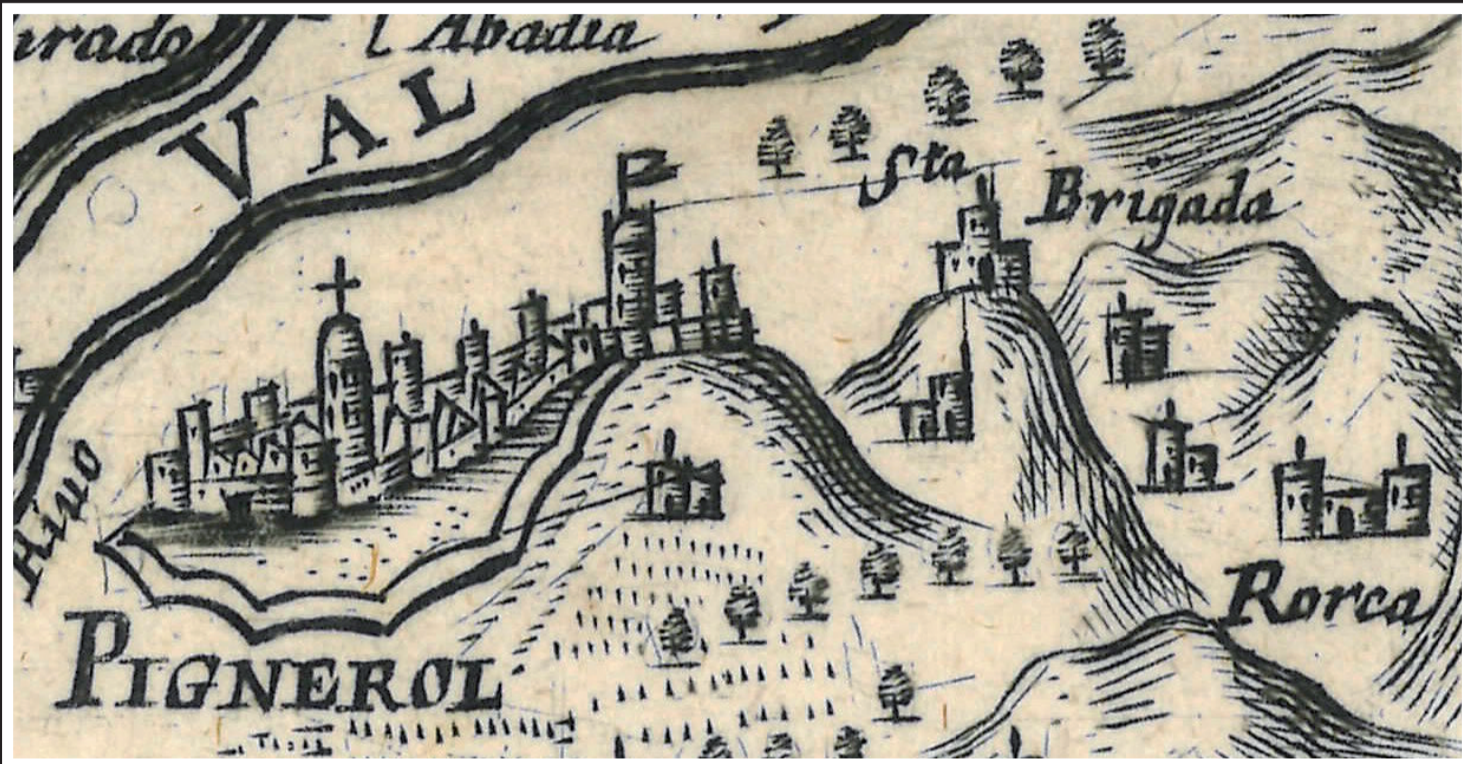 urado
l'Abadia
VAL
Sta Brigada
PIGNEROL
Rorca